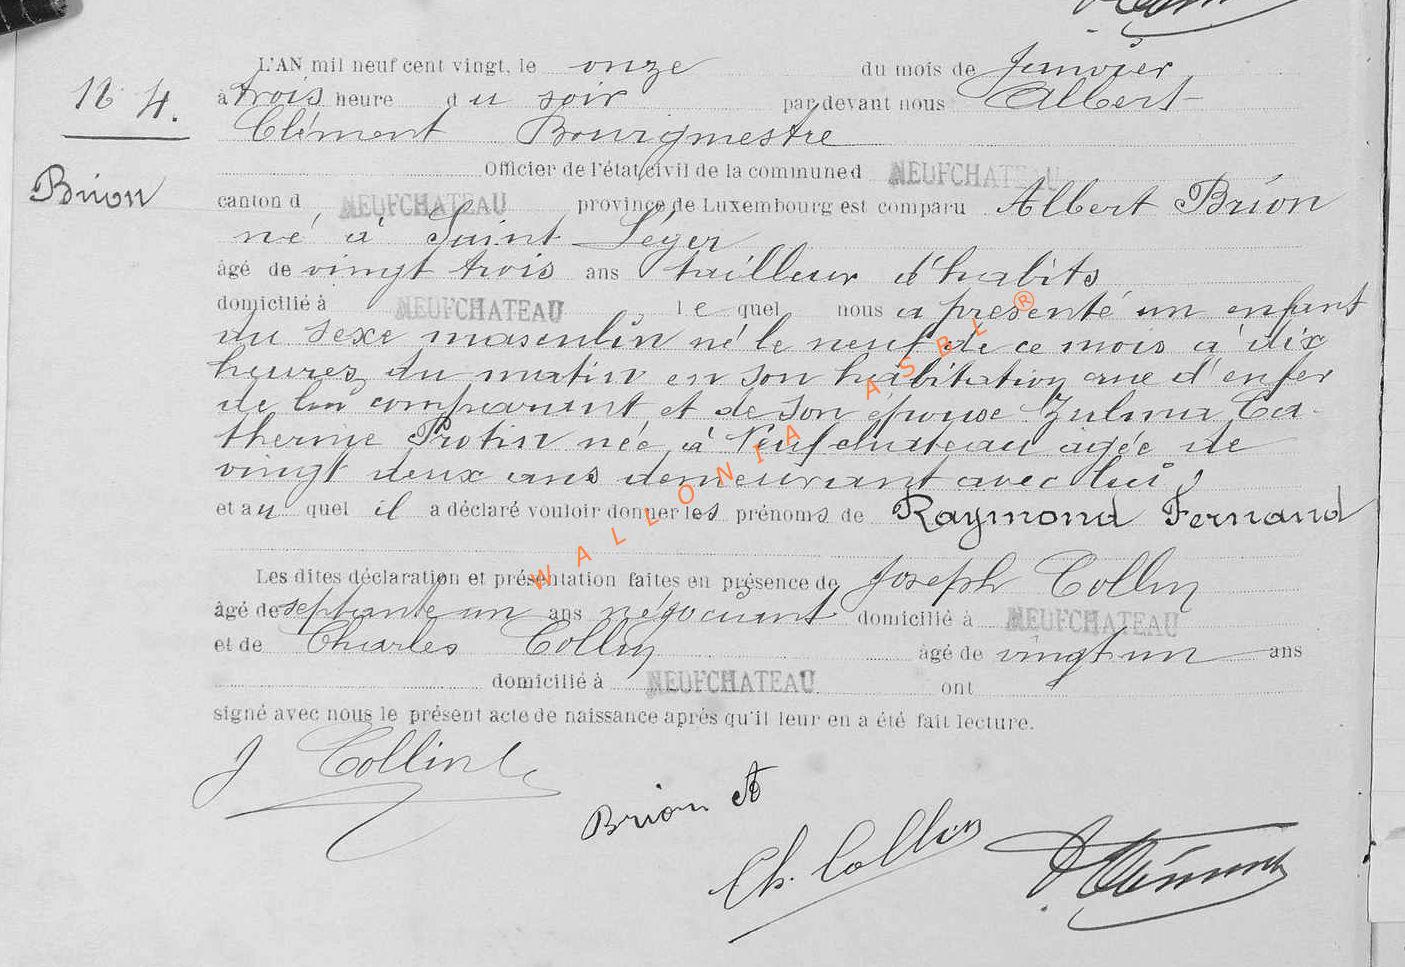 L'AN mil neuf cent vingt, le onze du mois de Janvier
N° 4.
à trois heure du soir par devant nous Albert
Clément Bourgmestre
Officier de l'état civil de la commune d NEUFCHATEAU
Brion
canton d NEUFCHATEAU province de Luxembourg est comparu Albert Brion
né à Saint Léger
âgé de vingt trois ans tailleur d'habits
domicilié à NEUFCHATEAU, lequel nous a présenté un enfant
du sexe masculin né le neuf de ce mois à dix
heures du matin en son habitation rue d'enfer
de lui comparant et de son épouse Zulma Ca-
therine Protin née à Neufchateau agée de
vingt deux ans demeurant avec lui,
et auquel il a déclaré vouloir donner les prénoms de Raymond Fernand
Les dites déclaration et présentation faites en présence de Joseph Collin
âgé de septante un ans négociant domicilié à NEUFCHATEAU
et de Charles Collin âgé de vingt un ans
domicilié à NEUFCHATEAU ont
signé avec nous le présent acte de naissance après qu'il leur en a été fait lecture.
J Collin
Brion A
Ch. Collin
A Clément
WALLONIA ASBL ®